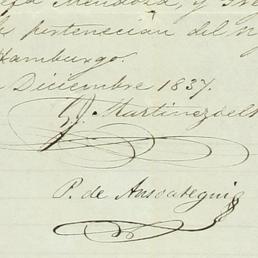 Mendoza, y
pertenecian del
Hamburgo.
Diciembre 1837.
Martinez del
P. de Ansoategui